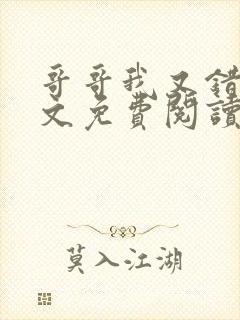 哥哥我又錯
文免費閱讀
莫入江湖